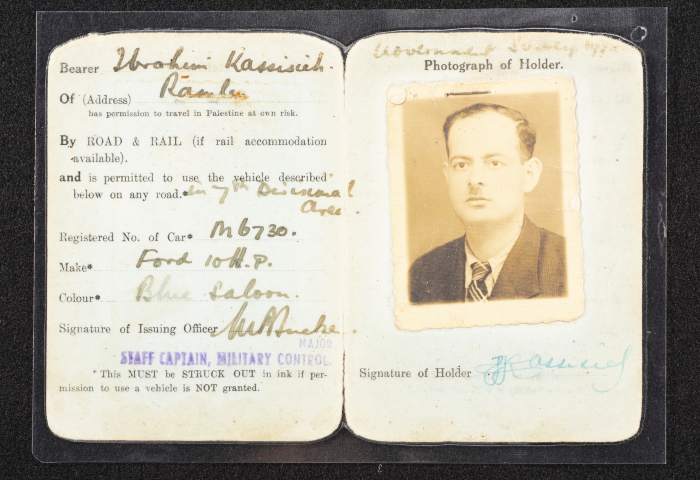 Bearer Ibrahim Kassisieh.
Of (Address) Ramleh
has permission to travel in Palestine at own risk.
By ROAD & RAIL (if rail accommodation
available).
and is permitted to use the vehicle described
below on any road.* in 7th Divisional
Area.
Registered No. of Car* M6730.
Make* Ford 10 H.P.
Colour* Blue Saloon.
Signature of Issuing Officer
MAJOR
STAFF CAPTAIN, MILITARY CONTROL.
*This MUST be STRUCK OUT in ink if per-
mission to use a vehicle is NOT granted.
Government
Photograph of Holder.
Signature of Holder Kassisieh